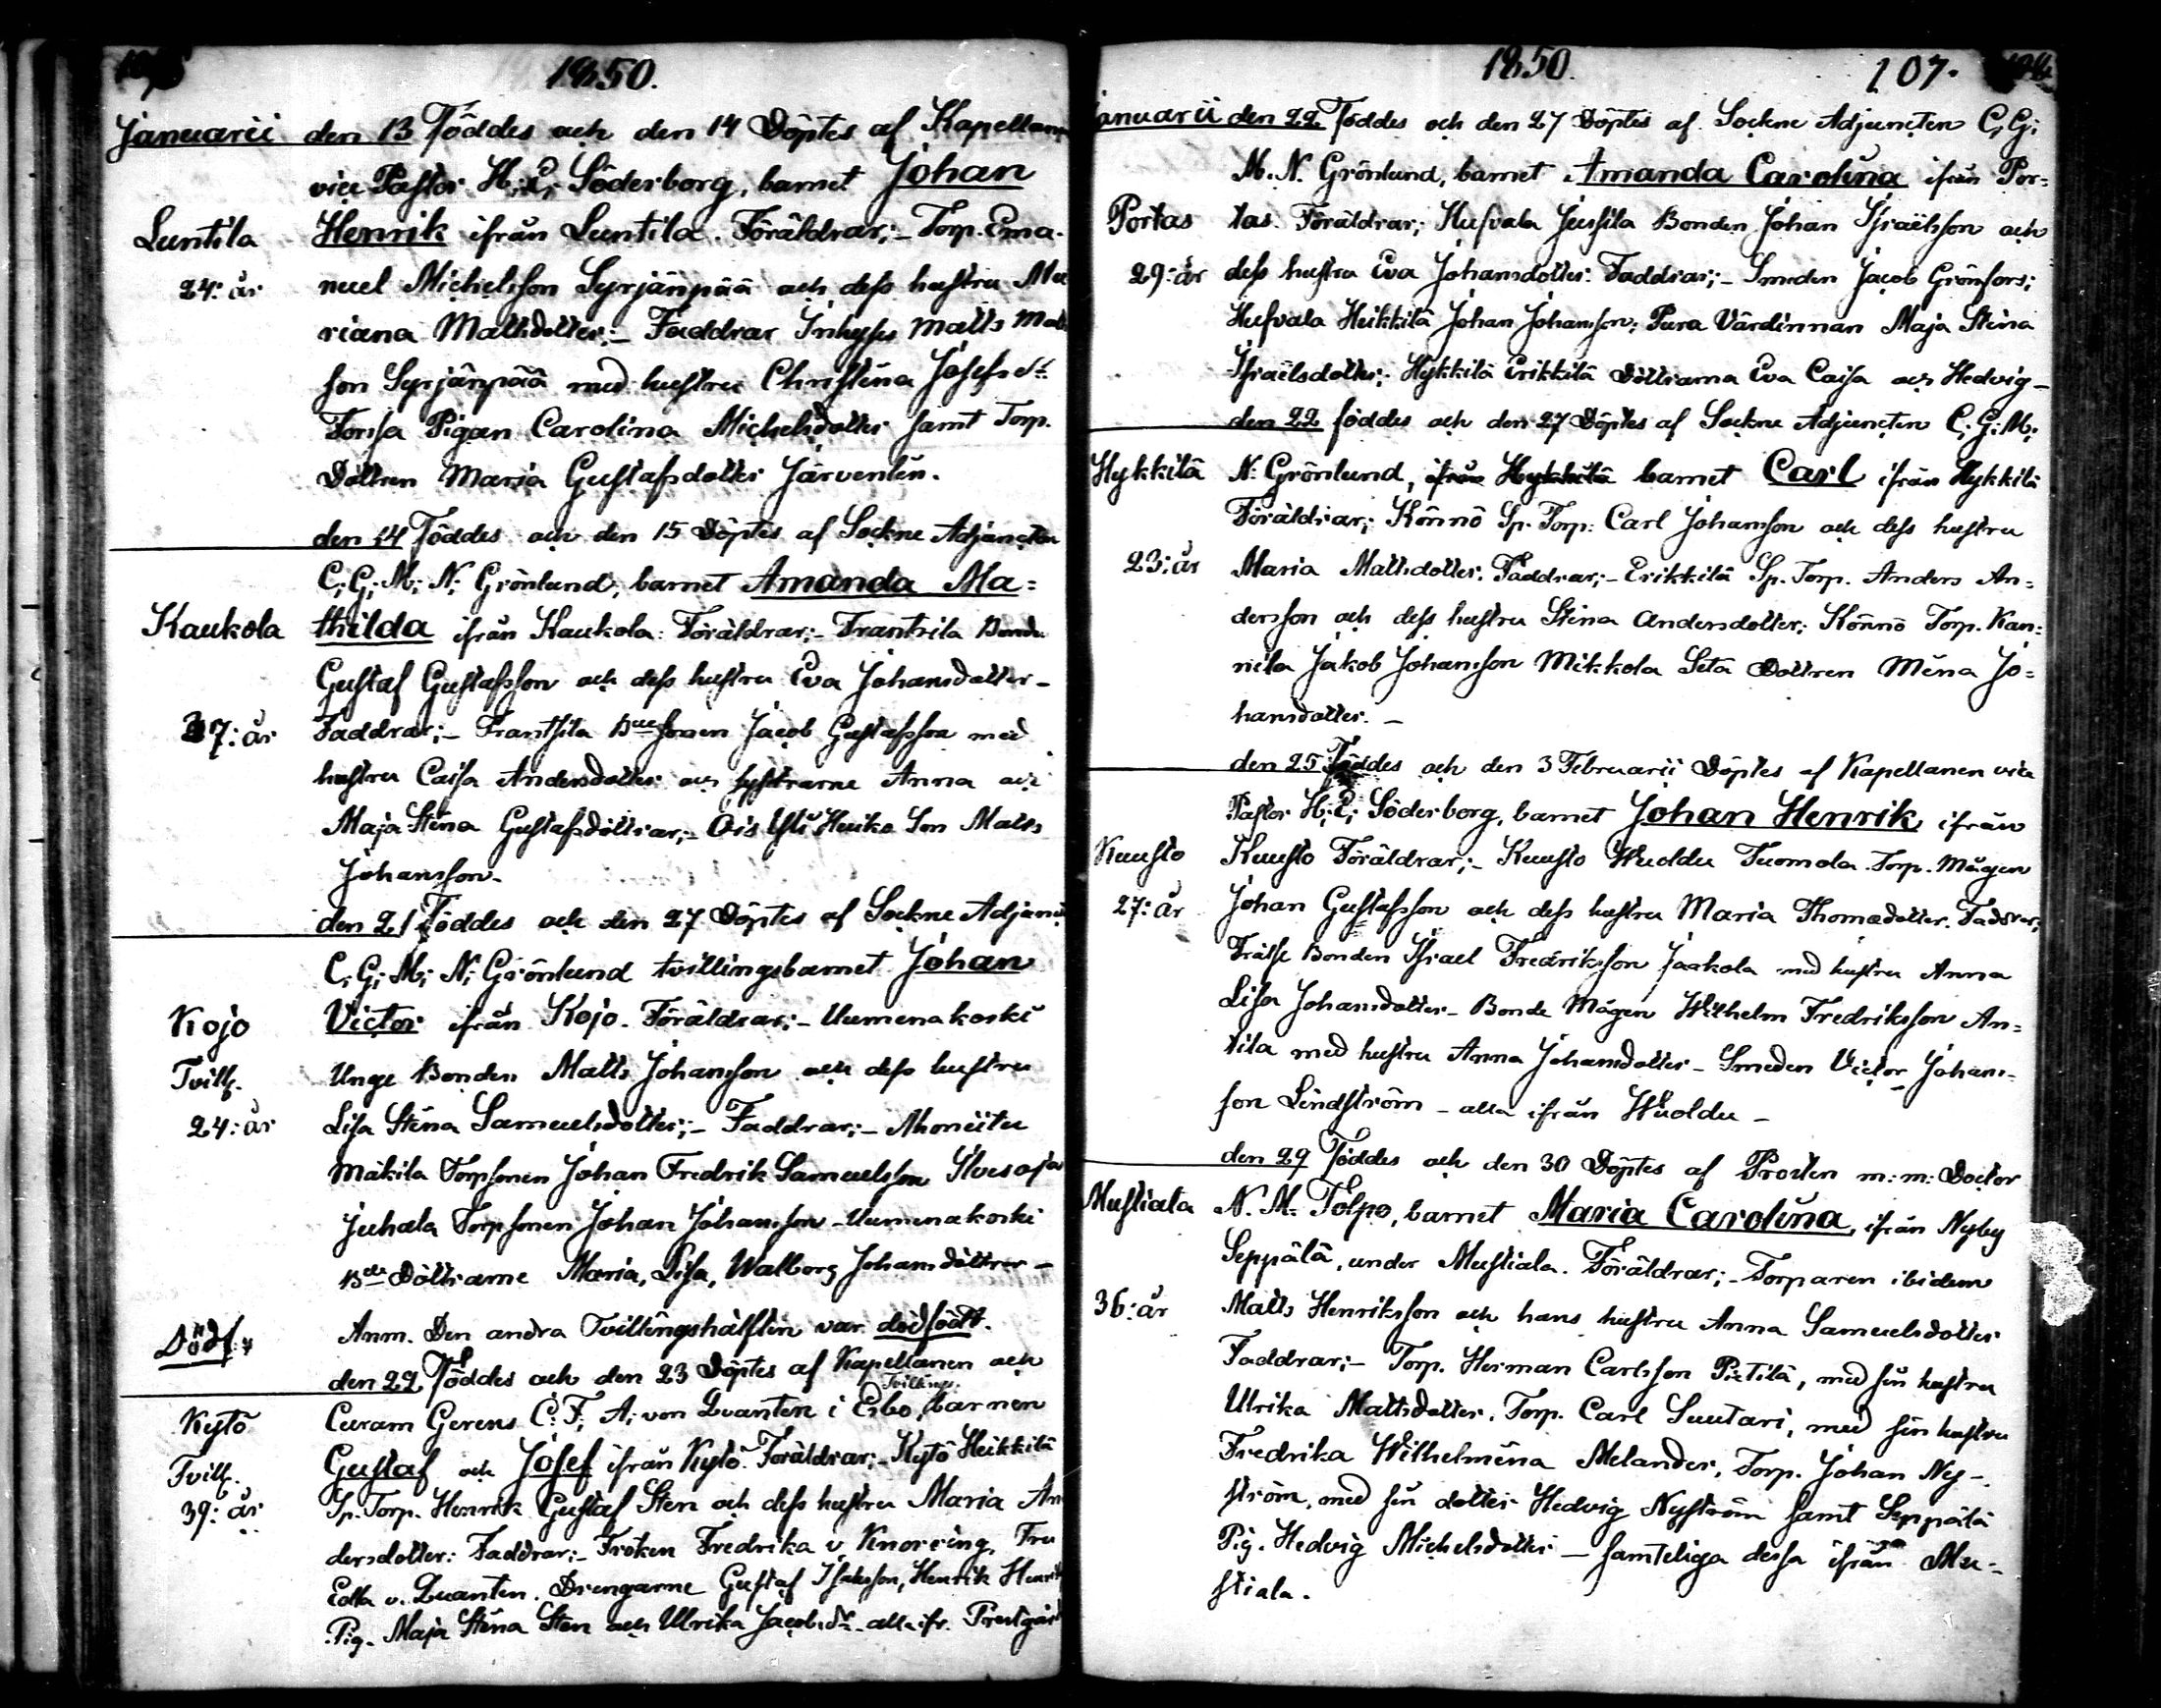 1850.
Januarii den 13 Föddes och den 14 Döptes af Kapellan
vice Pastor H; E; Söderborg, barnet Johan
Luntila Henrik ifrån Luntila. Föräldrar;- Torp. Ema-
24: år nuel Michelsson Syrjänpää och dess hustru Ma
riana Mattsdotter;- Faddrar Inhyses Matts Mats
son Syrjänpää med hustru Christina Josefsdr
Forssa Pigan Carolina Michelsdotter samt Torp.
Dottren Maria Gustafsdotter Järventén.
den 14 Föddes och den 15 Döptes af Sockne Adjuncten
C; G; M; N; Grönlund, barnet Amanda Ma=
Kaukola thilda ifrån Kaukola: Föräldrar;- Frantsila Bonde
Gustaf Gustafsson och dess hustru Eva Johansdotter-
37: år Faddrar;- Frantsila Bdesonen Jacob Gustafsson med
hustru Caisa Andersdotter och systrarne Anna och
Maja Stina Gustafsdöttrar;- Heiko Son Matts
Johansson-
den 21 Föddes och den 27 Döptes af Sockne Adjunc
C; G; M; N; Grönlund tvillingsbarnet Johan
Kojo Victor ifrån Kojo. Föräldrar;- Uumenakoski
Tvill. Unge Bonden Matts Johansson och dess hustru
24: år Lisa Stina Samuelsdotter;- Faddrar;- Ahoniitu
Mäkilä Torpsonen Johan Fredrik Samuelsson Ilvesoja
Juhala Torpsonen Johan Johansson - Uumenakoski
Bde Döttrarne Maria, Lisa, Walborg Johansdöttrar-
Dödf: Anm. Den andra Tvillingshälften var dödfödt.
den 22 Föddes och den 23 Döptes af Kapellanen och
Tvillings
Kytö Curam Gerens C: F; A; von Qvanten i Esbo, barnen
Tvill. Gustaf och Josef ifrån Kytö. Föräldrar;- Kytö Heikkilä
39: år Sp. Torp. Henrik Gustaf Sten och dess hustru Maria An
dersdotter: Faddrar;- Fröken Fredrika v. Knorring, Fru
Edla v. Qvanten. Drengarne Gustaf Isaksson, Henrik Henrik
Pig. Maja Stina Sten och Ulrika Jacobsdr alla ifr. Prestgård
1850. 107.
Januarii den 22 Föddes och den 27 Döptes af Sockne Adjuncten C; G;
M. N. Grönlund, barnet Amanda Carolina ifrån Por=
Portas tas. Föräldrar; Hufvala Jussila Bonden Johan Israelsson och
29: år dess hustru Eva Johansdotter: Faddrar;- Smeden Jacob Grönfors;
Hufvala Heikkilä Johan Johansson; Pura Värdinnan Maja Stina
Israelsdotter; Hykkilä Erikkilä Döttrarna Eva Caisa och Hedvig-
den 22 föddes och den 27 Döptes af Sockne Adjuncten C; G: M;
Hykkilä N: Grönlund, ifrån Hykkilä barnet Carl ifrån Hykkilä
Föräldrar; Könnö Sp. Torp: Carl Johansson och dess hustru
23: år Maria Mattsdotter. Faddrar;- Erikkilä Sp. Torp. Anders An=
dersson och dess hustru Stina Andersdotter; Könnö Torp. Kan=
nila Jakob Johansson Mikkola Seta Dottren Mina Jo=
hansdotter.-
den 25 Föddes och den 3 Februarii Döptes af Kapellanen vice
Pastor H; E; Söderborg, barnet Johan Henrik ifrån
Kuusto Kuusto Föräldrar;- Kuusto Wuoldu Tuomola Torp. Mågen
27: år Johan Gustafsson och dess hustru Maria Thomadotter. Faddrar;
Frälse Bonden Israel Fredriksson Jaakola med hustru Anna
Lisa Johansdotter- Bonde Mågen Wilhelm Fredriksson An=
tila med hustru Anna Johansdotter- Smeden Victor Johans-
son Lindström - alla ifrån Wuoldu -
den 29 Föddes och den 30 Döptes af Prosten m: m: Doctor
Mustiala N. M. Tolpo, barnet Maria Carolina, ifrån Nyby
Seppälä, under Mustiala. Föräldrar;- Torparen ibidem
36: år Matts Henriksson och hans hustru Anna Samuelsdotter
Faddrar;- Torp. Herman Carlsson Pietilä, med sin hustru
Ulrika Mattsdotter. Torp. Carl Suutari, med sin hustru
Fredrika Wilhelmina Melander, Torp. Johan Ny-
ström, med sin dotter Hedvig Nyström samt Seppälä
Pig. Hedvig Michelsdotter - samteliga dessa ifrån Mu-
stiala.